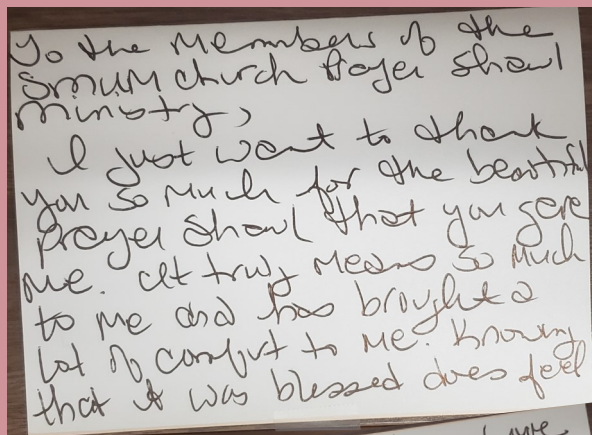 To the Members of the
SMUM church Prayer Shawl
Ministry,
I just want to thank
you so much for the beautiful
prayer shawl that you gave
me. It truly means so much
to me and has brought a
lot of comfort to me. Knowing
that it was blessed does feel